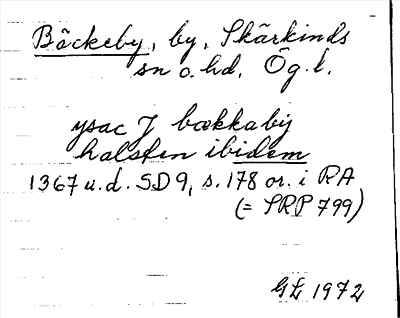 Bäckeby, by, Skärkinds
sn o. hd, Ög. l.
ysac J bækkaby
halsten ibidem
1367 u.d. SD 9, s. 178 or. i RA
(= SRP 799)
GL 1972